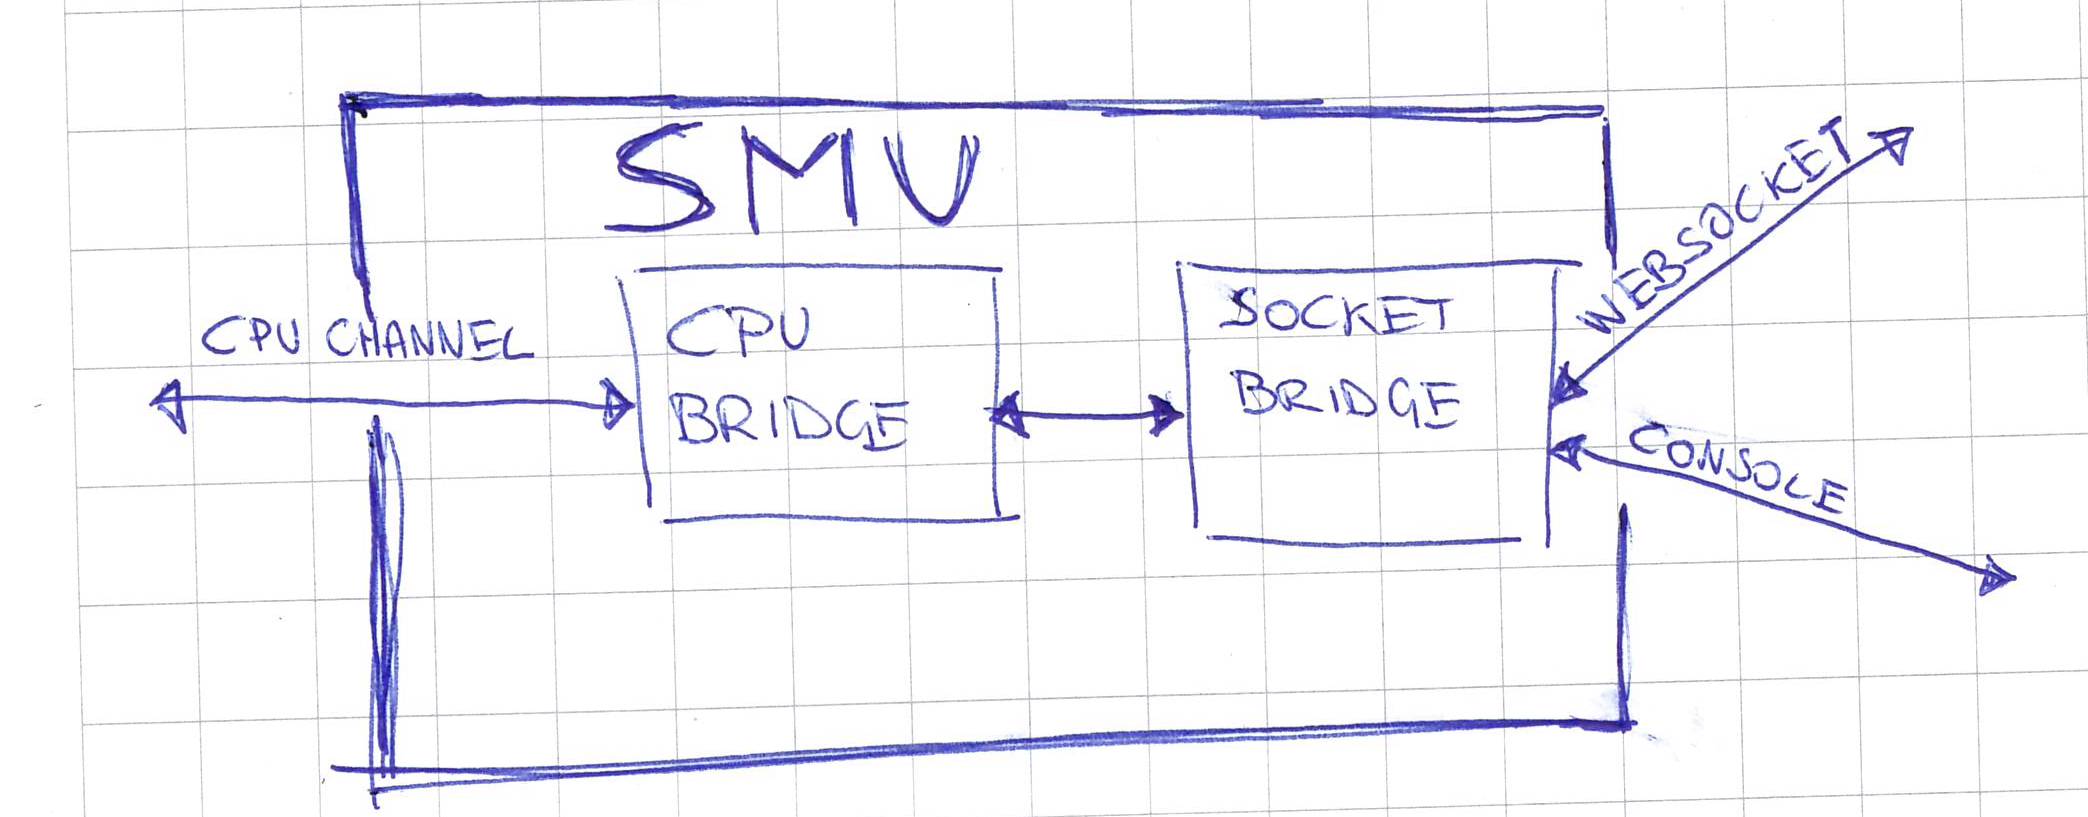 SMU
CPU CHANNEL
CPU
BRIDGE
SOCKET
BRIDGE
WEBSOCKET
CONSOLE